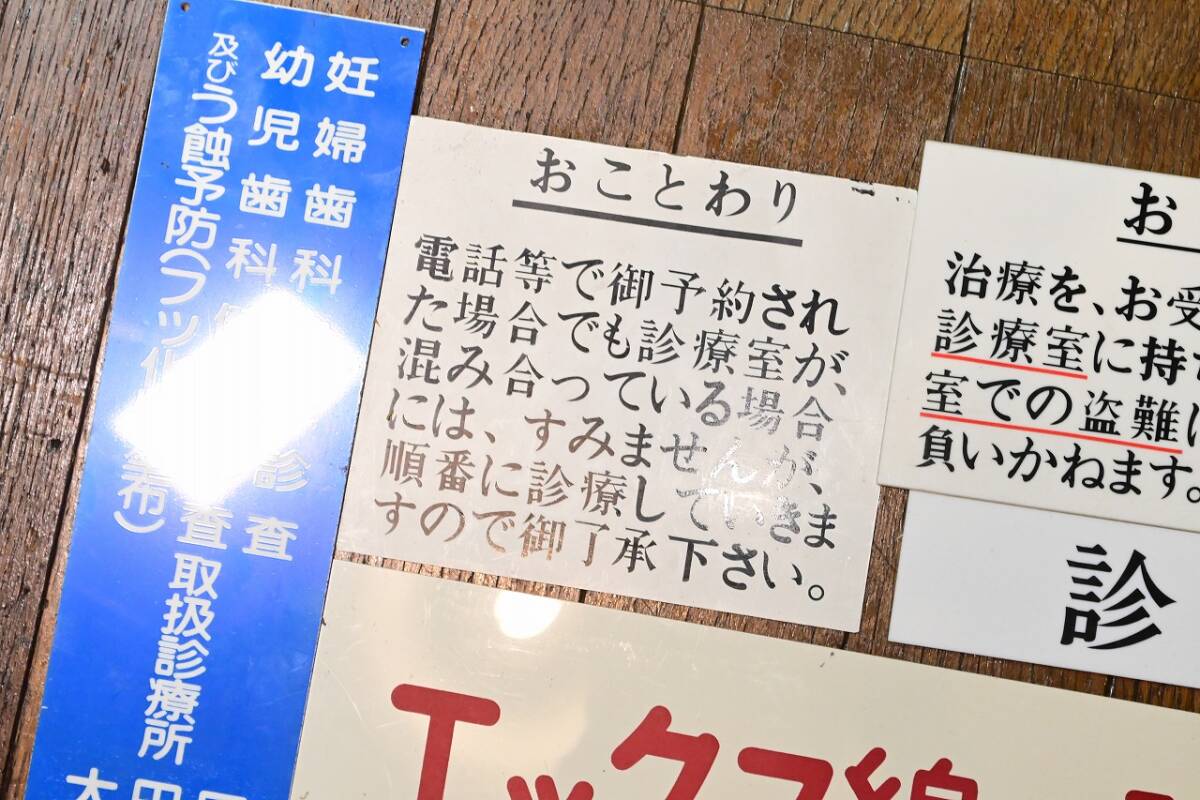 妊婦歯科
診査
幼児歯科
査取扱診療所
及びう蝕予防(フッ化
布)
おことわり
電話等で御予約され
た場合でも診療室が、
混み合っている場合
には、すみませんが、
順番に診療していきま
すので御了承下さい。
お
治療を、お受
診療室に持
室での盗難
負いかねます。
診
エックス線